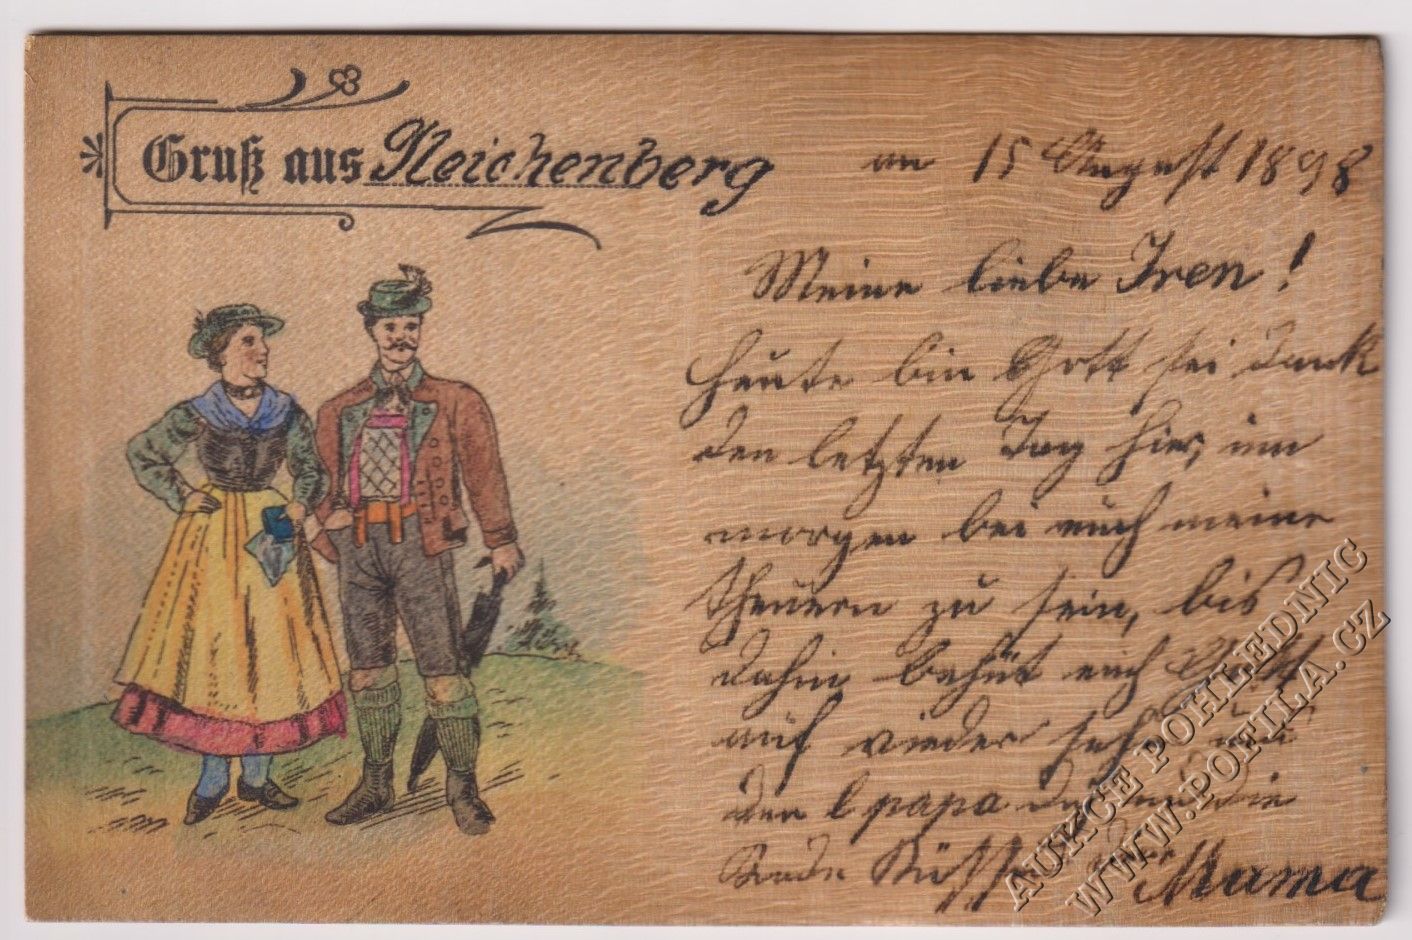 Gruß aus Reichenberg
am 15 August 1898
Meine liebe Iren!
heute bin Gott sei dank
den letzten Tag hier, um
morgen bei euch meine
theuern zu sein, bis
dahin behüt euch Gott
auf wieder sehn
den l papa die
Küsst Mama
AUKCE POHLEDNIC
WWW.POFILA.CZ